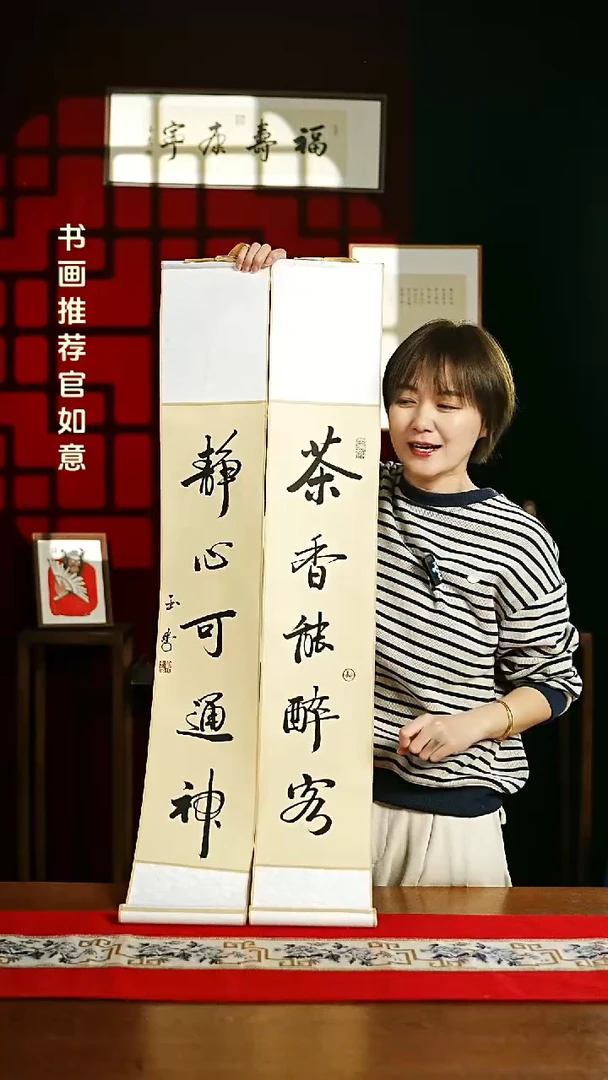 福壽康宁
书画推荐官如意
茶香能醉客
静心可通神
玉秀